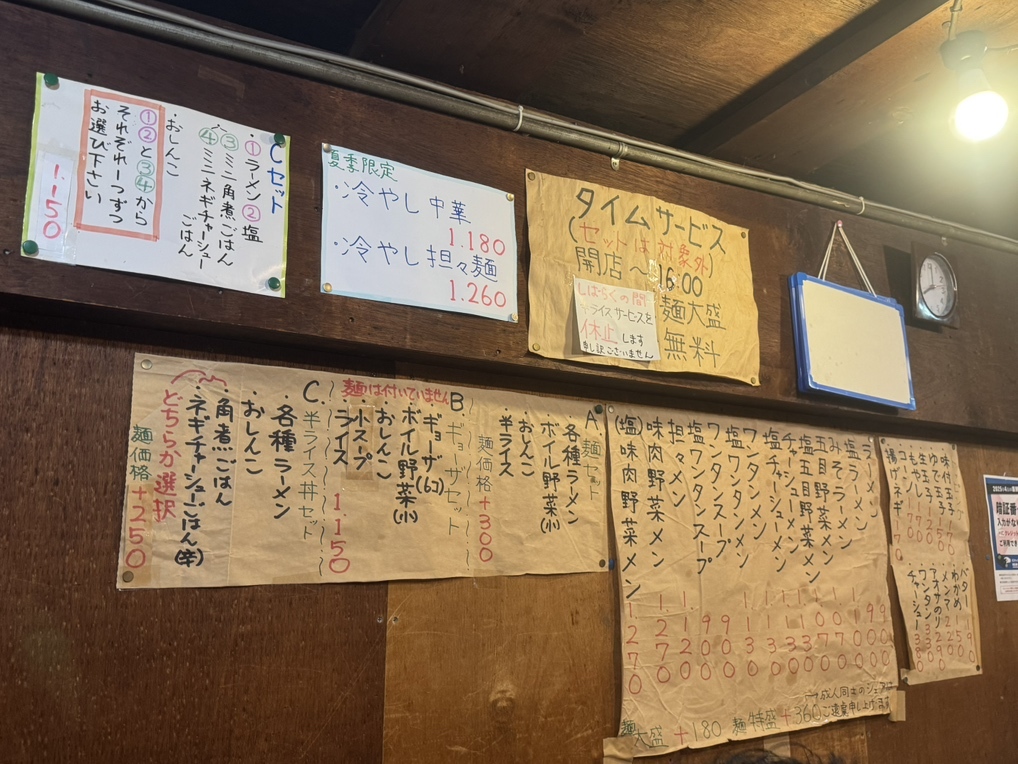 Cセット
・①ラーメン②塩
③ミニ角煮ごはん
④ミニネギチャーシュー
ごはん
・おしんこ
①②と③④から
それぞれ一つずつ
お選び下さい
1.150
夏季限定
・冷やし中華
1.180
・冷やし担々麺
1.260
タイムサービス
(セットは対象外)
開店～16:00
麺大盛
無料
しばらくの間
ライスサービスを
休止します
申し訳ございません
A 麺セット
・各種ラーメン
・ボイル野菜(小)
・おしんこ
・半ライス
麺価格+300
B ギョーザセット
麺は付いていません
・ギョーザ(6コ)
ボイル野菜(小)
おしんこ
小スープ
ライス 1.150
C 半ライス丼セット
・各種ラーメン
・おしんこ
・角煮ごはん
・ネギチャーシューごはん(辛)
どちらか選択
麺価格+250
ラーメン
塩ラーメン
みそラーメン
五目野菜メン
塩五目野菜メン
チャーシューメン
塩チャーシューメン
ワンタンメン
塩ワンタンメン
ワンタンスープ
塩ワンタンスープ
担々メン
味肉野菜メン
(塩)味肉野菜メン 1270
麺大盛+180 麺特盛+360
成人同士のシェアは
ご遠慮申し上げます
味付玉子
ゆで玉子
生玉子
もやし
コーン
揚ネギ
バター
わかめ
メンマ
アオサのり
ワンタン
チャーシュー
暗証番
入力が